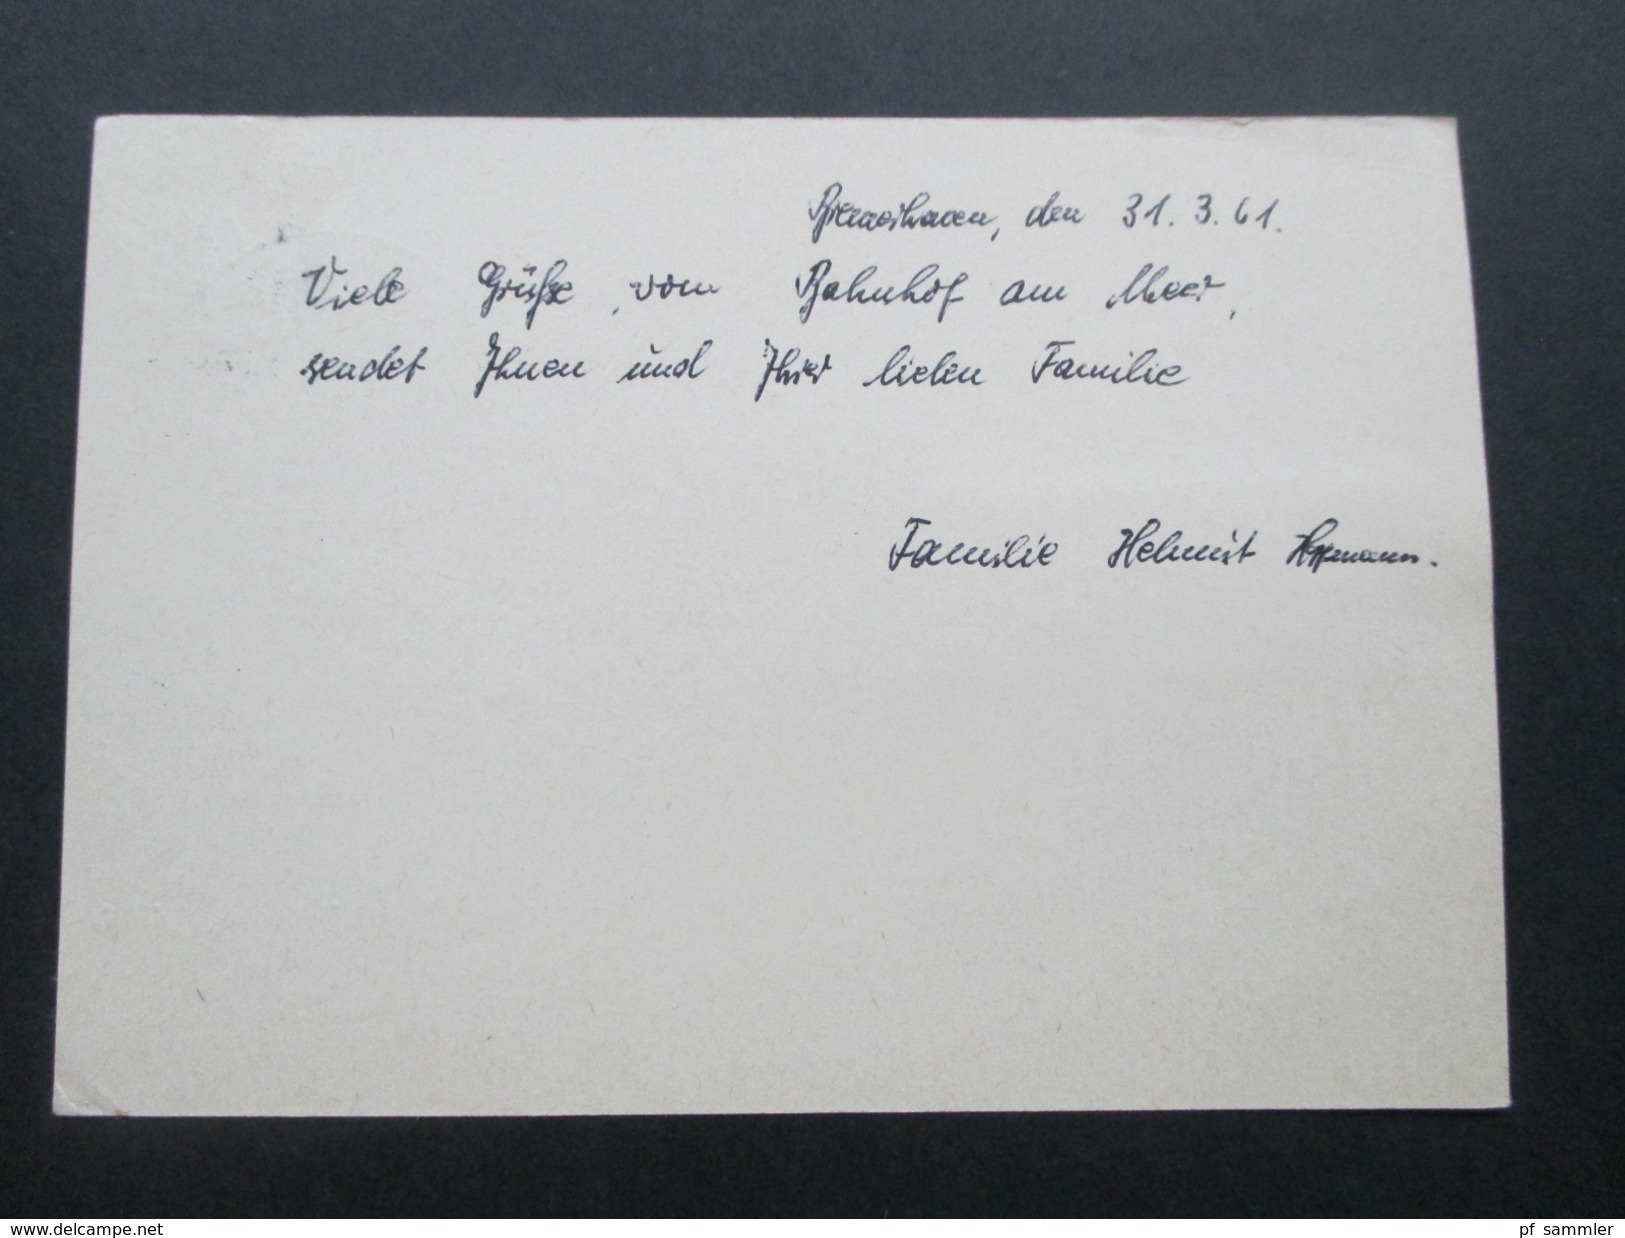 Bremerhaven, den 31. 3. 61.
Viele Grüße, vom Bahnhof am Meer,
sendet Ihnen und Ihrer lieben Familie
Familie Helmut Hoffmann.
www.delcampe.net
pf_sammler